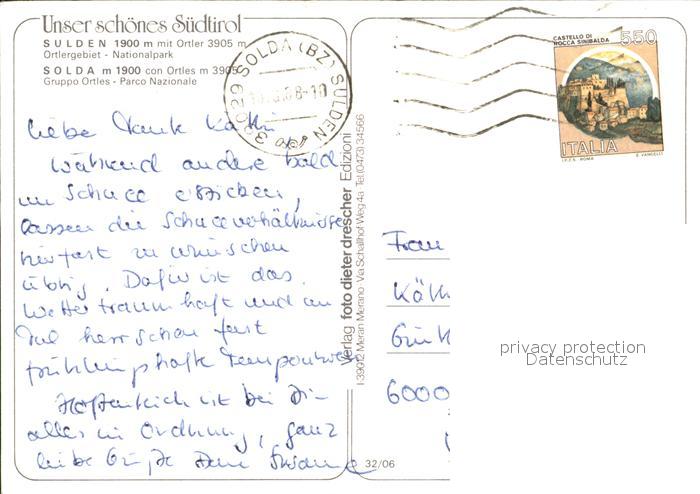 Unser schönes Südtirol
SULDEN 1900 m mit Ortler 3905 m
Ortlergebiet - Nationalpark
SOLDA m 1900 con Ortles m 3905
Gruppo Ortles - Parco Nazionale
39029 SOLDA (BZ) SULDEN
CASTELLO DI
ROCCA SINIBALDA
550
ITALIA
I.P.Z.S. ROMA E. VANGELLI
liebe Tante Käthi
während andere bald
im Schnee ersticken,
lassen die Schneeverhältnisse
hier fast zu wünschen
übrig. Dafür ist das
Wetter traumhaft und im
Tal herrschen fast
frühlingshafte Temperaturen
Hoffentlich ist bei Dir
alles in Ordnung, ganz
liebe Grüße Deine Susanne
Verlag foto dieter drescher Edizioni
I-39012 Meran Merano · Via Schallhof-Weg 4a Tel. (0473) 34566
32/06
Frau
6000
privacy protection
Datenschutz